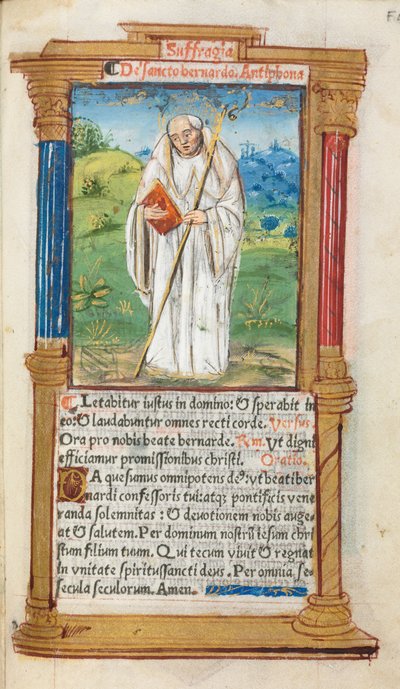 Suffragia
¶ De sancto bernardo. Antiphona
¶ Letabitur iustus in domino: & sperabit in
eo: & laudabuntur omnes recti corde. Versus.
Ora pro nobis beate bernarde. R̃m. Vt digni
efficiamur promissionibus christi. Oratio.
DA quesumus omnipotens de9: vt beati ber
nardi confessoris tui: atq3 pontificis vene
randa solemnitas: & deuotionem nobis auge-
at & salutem. Per dominum nostrũ iesum chri
stum filium tuum. Qui tecum viuit & regnat
in vnitate spiritussancti deus. Per omnia se-
secula seculorum. Amen.